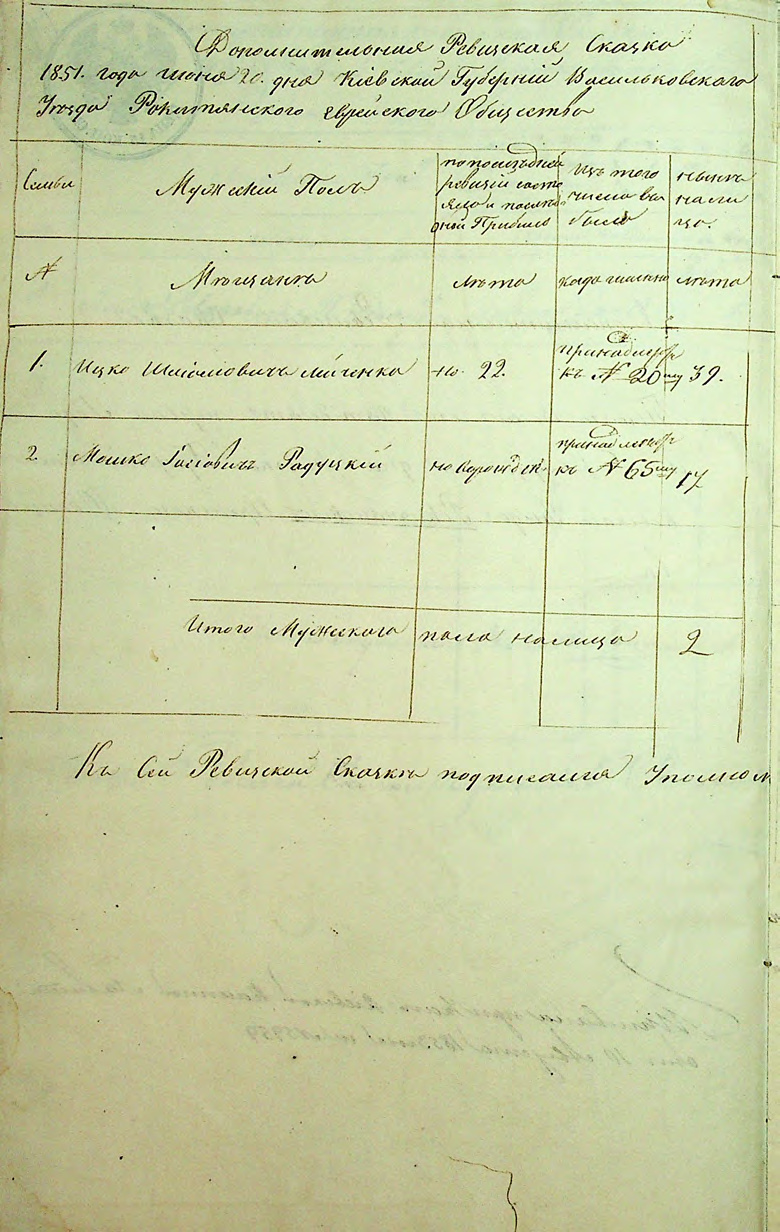 Дополнительная Ревизская Сказка
1851. года июня 20. дня Кіевской Губерніи Васильковскаго
Уезда Рокитянскаго еврейского Общества
Семьи
Мужескій Полъ
по последней
ревизіи состо
яло и после
оной Прибыло
Изъ того
числа вы
было
ныне
на ли
цо.
№
Мещане
лета
когда именно
лета
1.
Ицко Шліомовичъ
но 22.
принадлеж
къ № 20му
39.
2
Мошко Радуцкій
новорожден
принадлежр
къ № 65му
17
Итого Мужескаго пола налицо 2
Къ Сей Ревизской Сказке подписался